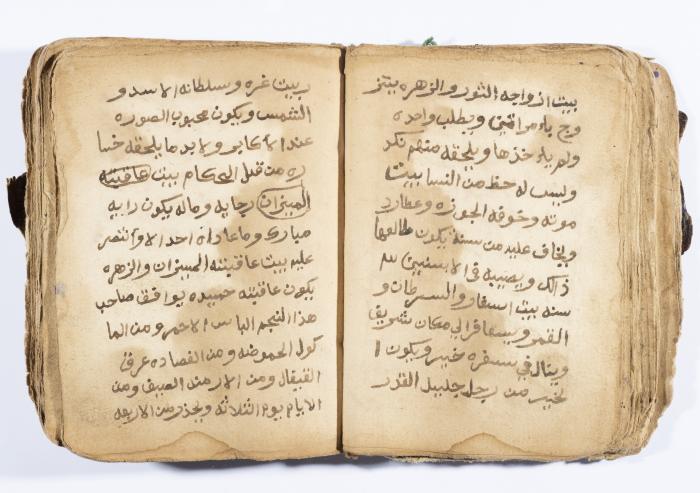 بيت ازواجه الثور والزهره يتز
وج باءمراتين ويطلب واحده
ولم ياءخذها ويلحقه منهم نكد
وليس له حظ من النسا بيت
موته وخوفه الجوزه وعطارد
ويخاف عليه من سنة يكون طالعها
ذالك ويصيبه في الاسنين
سنه بيت اسفار والسرطان و
القمر ويسافر الي مكان شريف
وينال في سفره خير ويكون ا
لخير من رجل جليل القدر
بيت عزه وسلطانه الاسد و
الشمس ويكون محبوب الصوره
عند الاكابر ولابد ما يلحقه خسا
ره من قبل الحكام بيت عاقبته
الميزان رجايه وماله يكون رايه
مبارك وما عاداه احد الا وانتصر
عليه بيت عاقبته الميزان والزهره
يكون عاقبته حميده يوافق صاحب
هذا النجم الباس الاحمر ومن الما
كول الحموضه ومن الفصاده عرق
القيفال ومن الازمن الصيف ومن
الايام يوم الثلاثه ويحذر من الاربعه